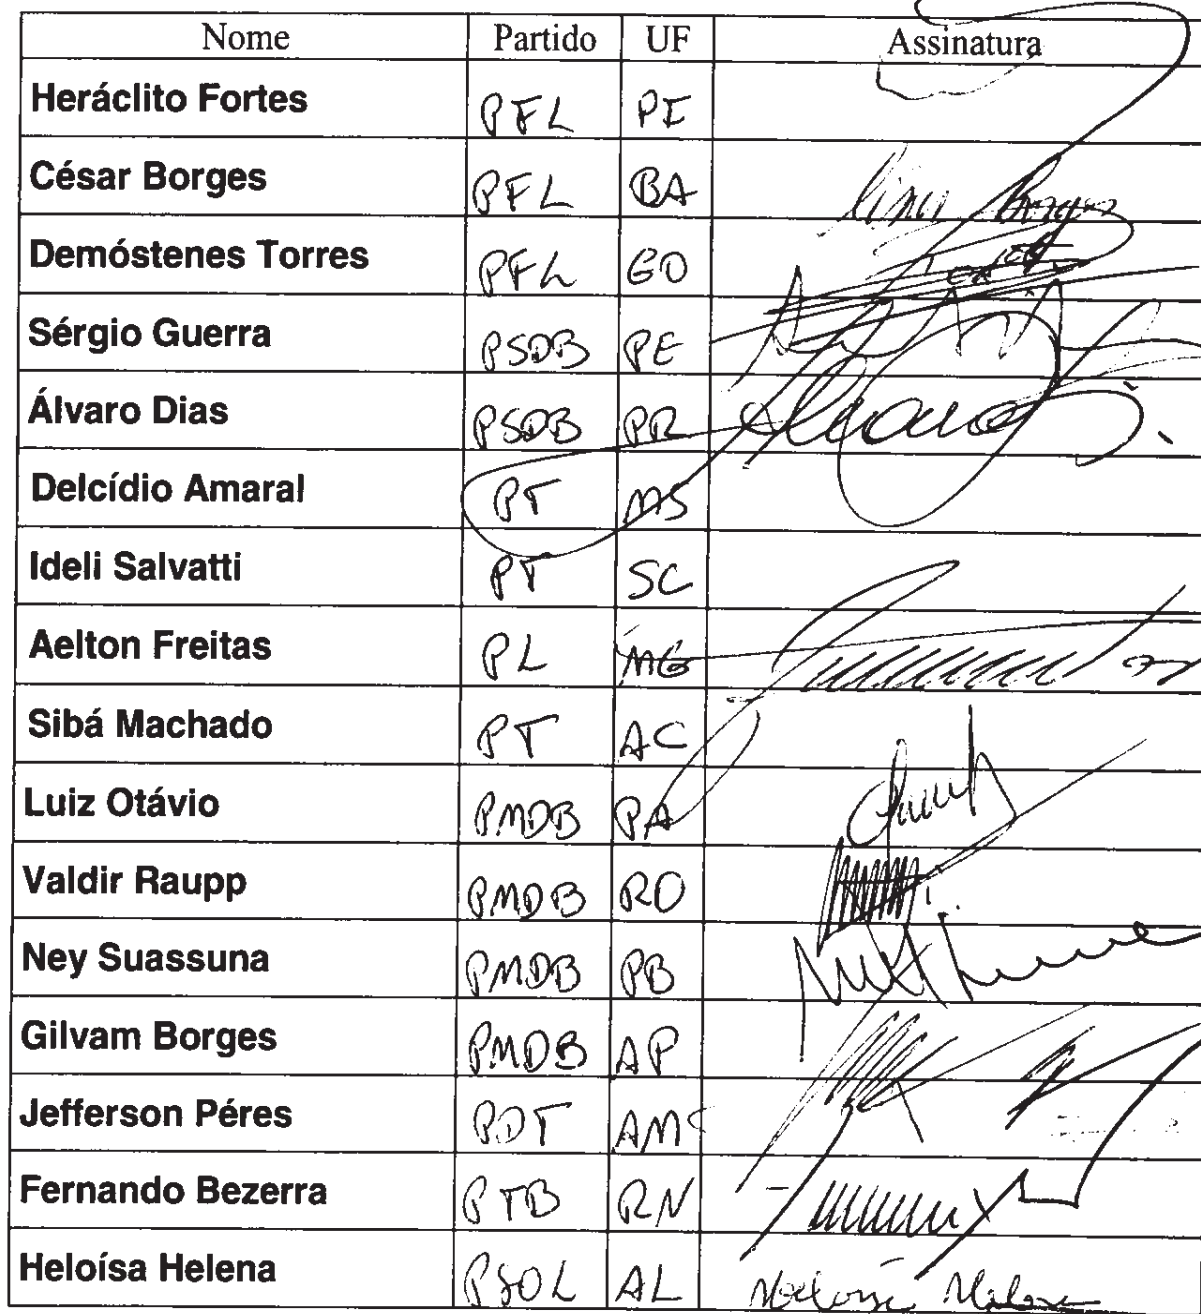 Nome Partido UF Assinatura
Heráclito Fortes PFL PI
César Borges PFL BA
Demóstenes Torres PFL GO
Sérgio Guerra PSDB PE
Álvaro Dias PSDB PR
Delcídio Amaral PT MS
Ideli Salvatti PT SC
Aelton Freitas PL MG
Sibá Machado PT AC
Luiz Otávio PMDB PA
Valdir Raupp PMDB RO
Ney Suassuna PMDB PB
Gilvam Borges PMDB AP
Jefferson Péres PDT AM
Fernando Bezerra PTB RN
Heloísa Helena PSOL AL